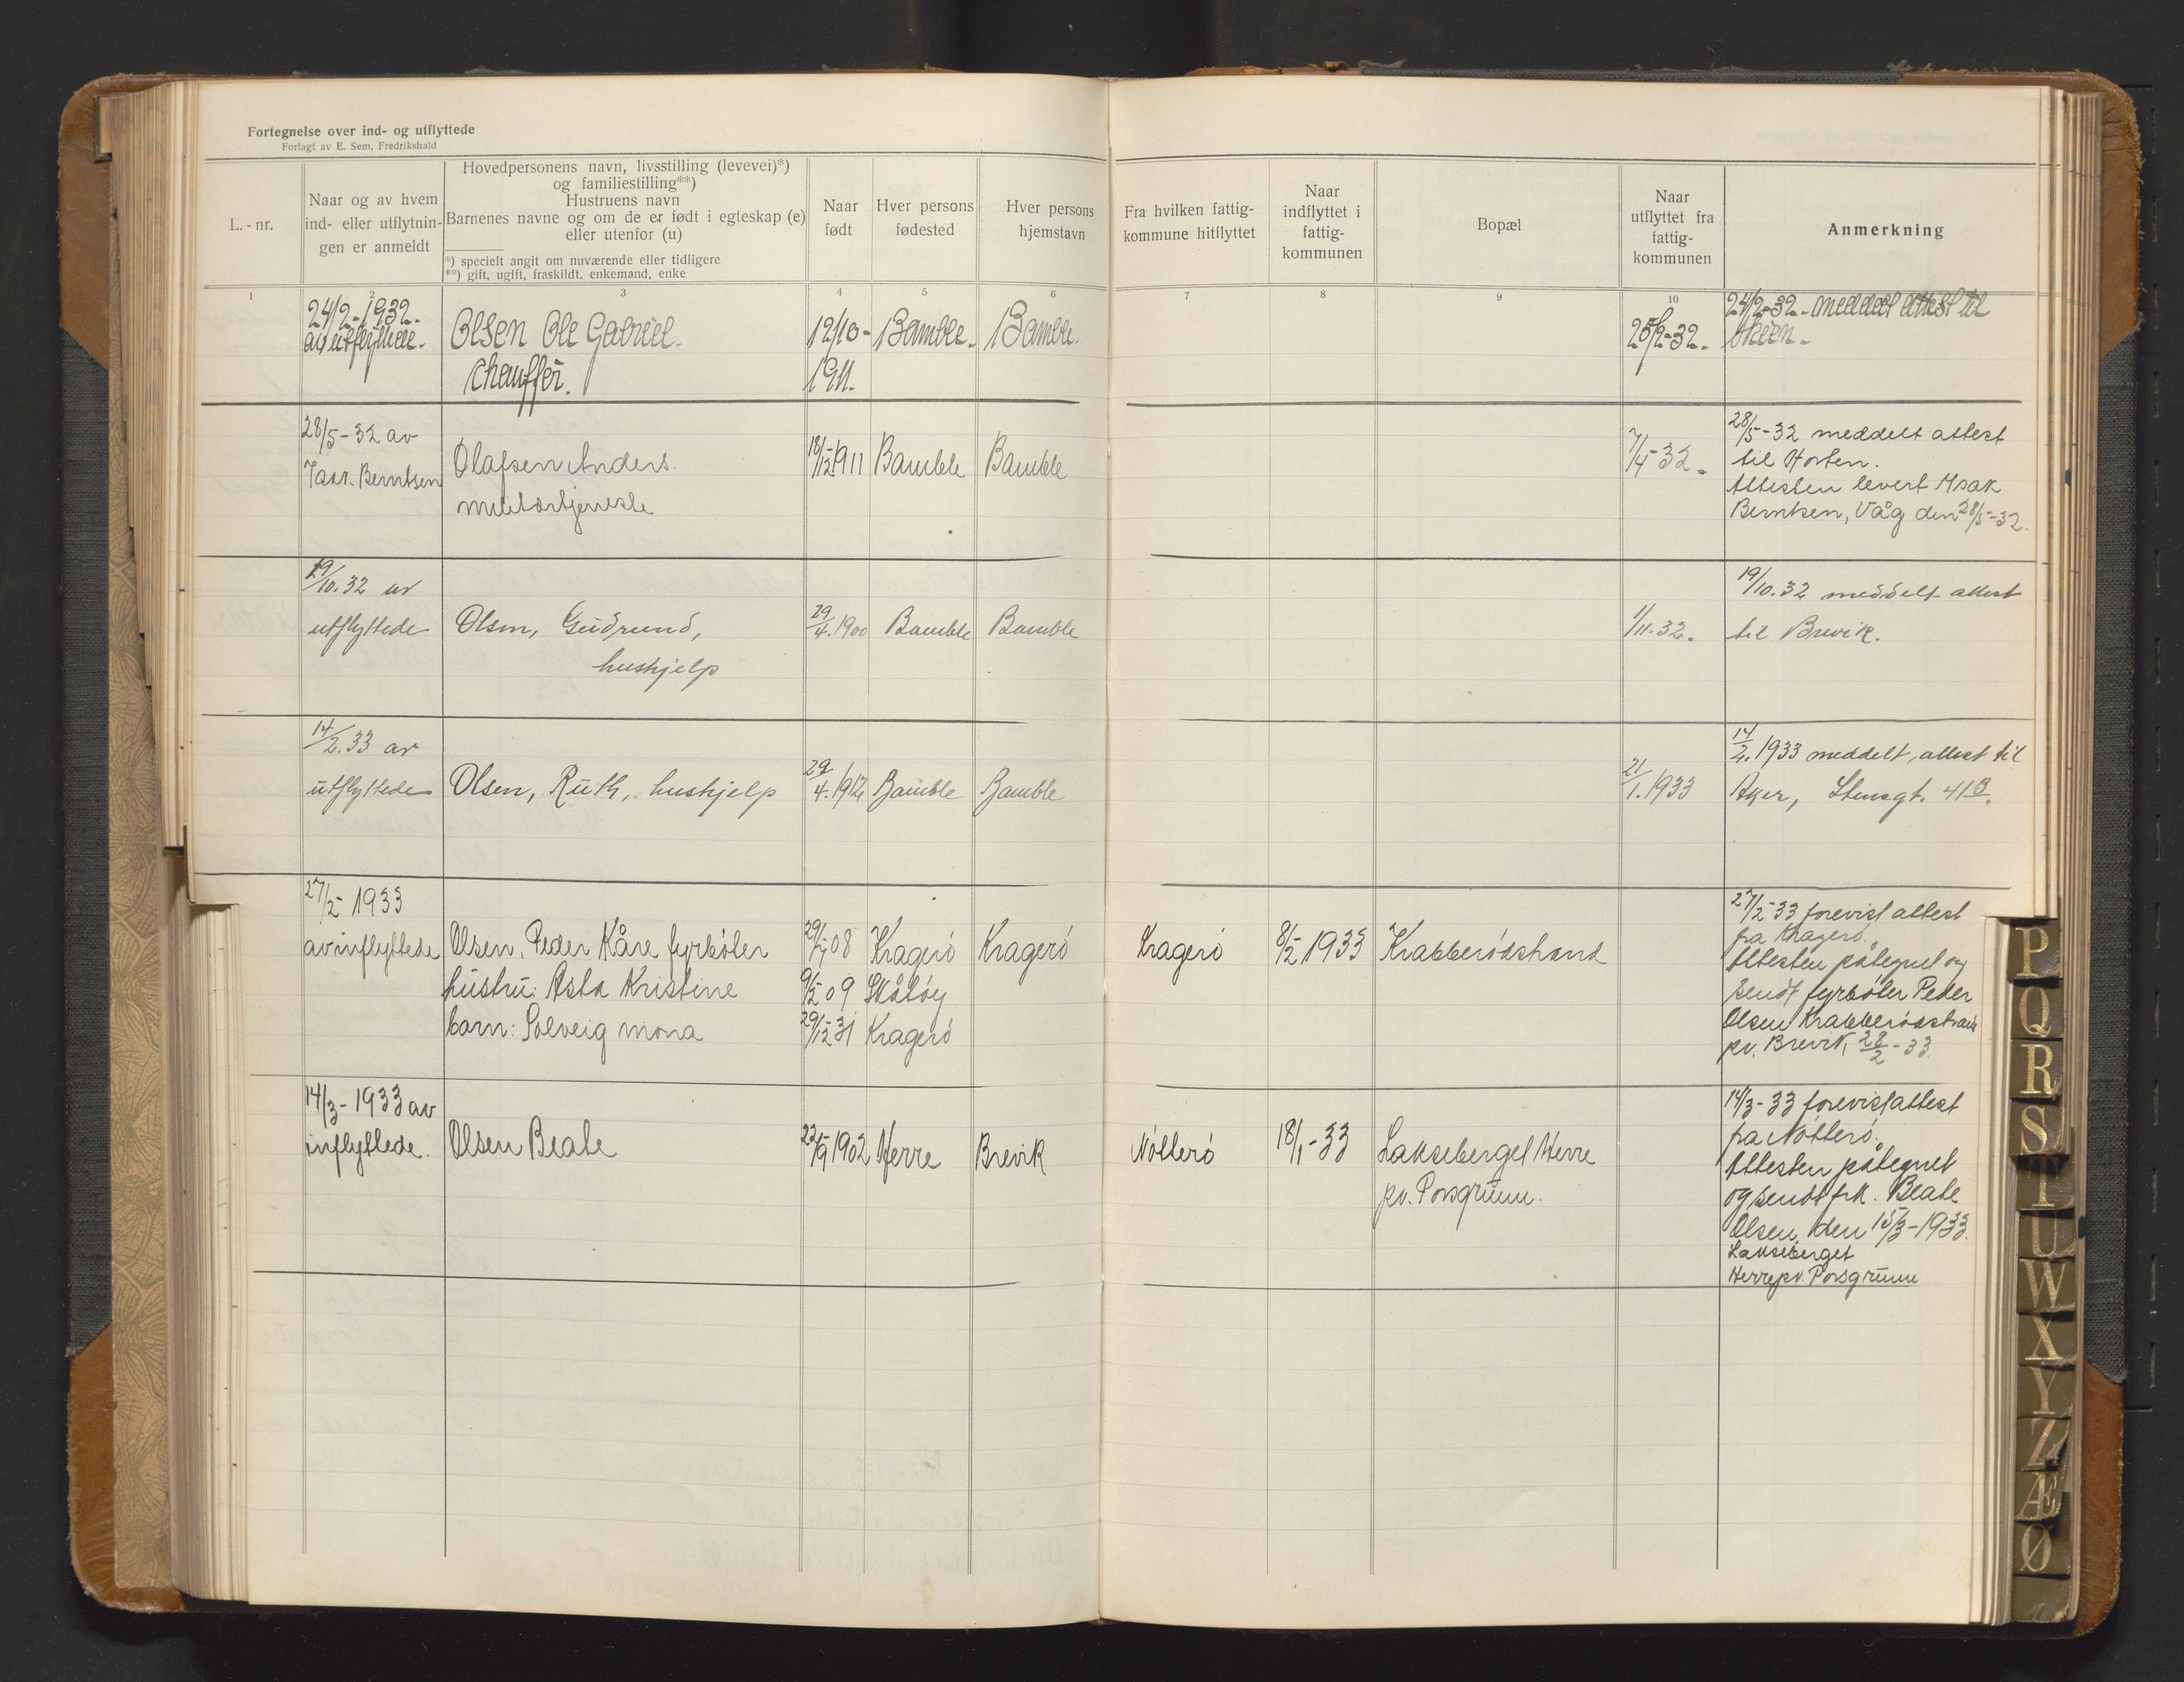 Fortegnelse over ind- og utflyttede
Forlagt av E. Sem, Fredrikshald
L. - nr.
Naar og av hvem
ind- eller utflytnin-
gen er anmeldt
Hovedpersonens navn, livsstilling (levevei)*)
og familiestilling**)
Hustruens navn
Barnenes navne og om de er født i egteskap (e)
eller utenfor (u)
*) specielt angit om nuværende eller tidligere
**) gift, ugift, fraskildt, enkemand, enke
Naar
født
Hver persons
fødested
Hver persons
hjemstavn
Fra hvilken fattig-
kommune hitflyttet
Naar
indflyttet i
fattig-
kommunen
Bopæl
Naar
utflyttet fra
fattig-
kommunen
Anmerkning
1 2 3 4 5 6 7 8 9 10
24/2-1932.
av utflyttede.
Olsen Ole Gabriel.
Chauffør.
12/10-
1911.
Bamble.
Bamble.
25/2-32.
24/2-32. meddelt attest til
Skien.
28/5-32 av
Berntsen
Olafsen Anders.
militærtjeneste
18/12 1911
Bamble
Bamble
7/4-32.
28/5-32 meddelt attest
til Horten.
Attesten levert Isak
Berntsen, Våg den 28/5-32.
19/10.32 av
utflyttede
Olsen, Gudrund,
hushjelp
29/4.1900
Bamble
Bamble
1/11.32.
19/10.32 meddelt attest
til Brevik.
14/2.33 av
utflyttede
Olsen, Ruth, hushjelp
29/4.1912
Bamble
Bamble
21/1.1933
14/2.1933 meddelt, attest til
Aker, Stensgt. 41B.
27/2-1933
av inflyttede
Olsen, Peder Kåre fyrbøter
hustru: Asta Kristine
barn: Solveig Mona
29/7 08
9/2 09
29/12 31
Kragerö
Skåtöy
Kragerö
Kragerö
Kragerö
8/2 1933
Krabberödstrand
27/2-33 forevist attest
fra Kragerö.
Attesten påtegnet og
sendt fyrböter Peder
Olsen Krabberödstrand
pv. Brevik, 28/2-33.
14/3-1933 av
inflyttede.
Olsen Beate
22/9 1902
Herre
Brevik
Nötterö
18/1-33
Lakseberget Herre
pv. Porsgrunn.
14/3-33 forevist attest
fra Nötterö.
Attesten påtegnet
og sendt frk. Beate
Olsen, den 15/3-1933.
Lakseberget
Herre pv. Porsgrunn
P
Q
R
S
T
U
W
X
Y
Z
Æ
Ø